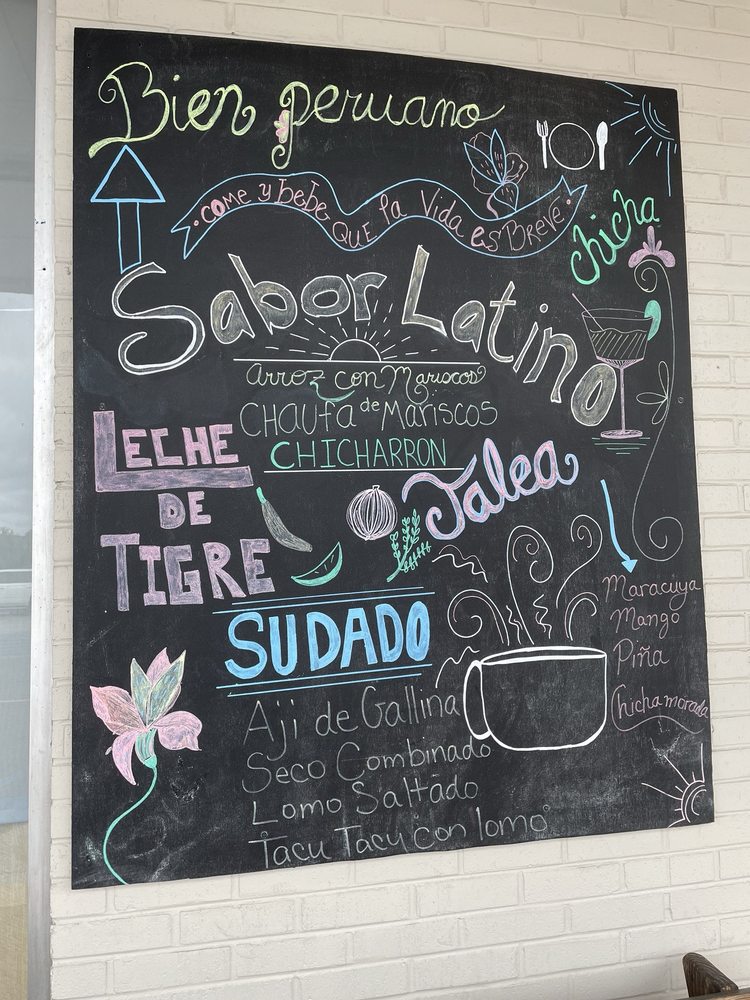 Bien peruano
COME Y bebe QUE la Vida es BREVE
chicha
Sabor Latino
Arroz con Mariscos
CHAUfa de Mariscos
CHICHARRON
LECHE
DE
TIGRE
Jalea
SUDADO
Maracuya
Mango
Piña
Chicha morada
Aji de Gallina
Seco Combinado
Lomo Saltado
Tacu Tacu con lomo